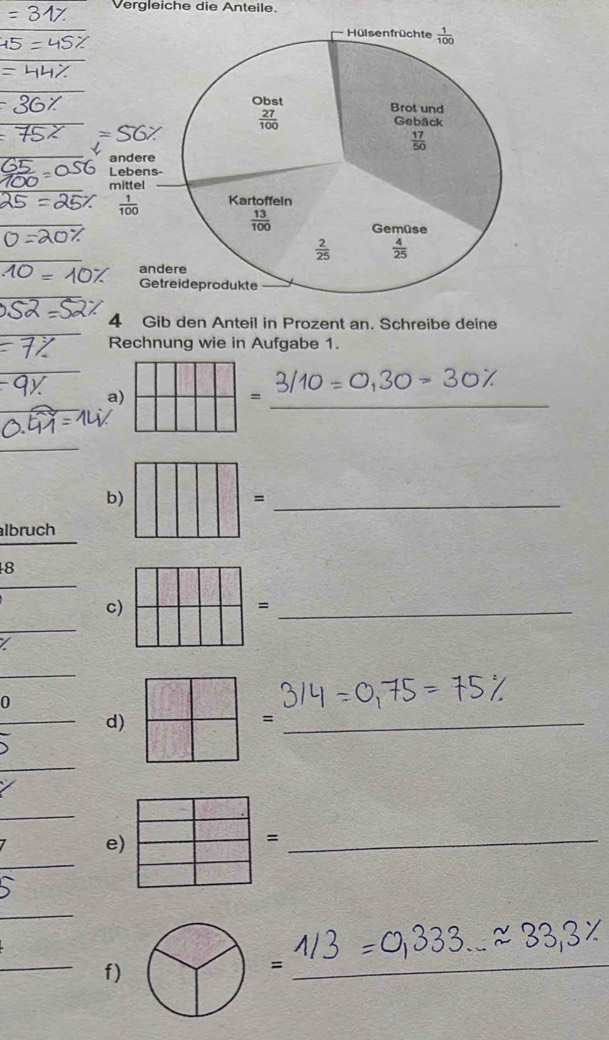 Vergleiche die Anteile.
= 31%
45 = 45%
= 44%
= 36%
= 75% = 56%
65/100 = 056
25 = 25%
0 = 20%
10 = 10%
052 = 52%
= 7%
= 9%
= 14%
albruch
48
%
0
5
%
7
5
Hülsenfrüchte 1/100
Obst
27/100
Brot und
Gebäck
17/50
andere
Lebens-
mittel
1/100
Kartoffeln
13/100
Gemüse
4/25
2/25
andere
Getreideprodukte
4 Gib den Anteil in Prozent an. Schreibe deine
Rechnung wie in Aufgabe 1.
a) = 3/10 = 0,30 = 30%
b) =
c) =
d) = 3/4 = 0,75 = 75%
e) =
f) = 1/3 = 0,333... ≈ 33,3%